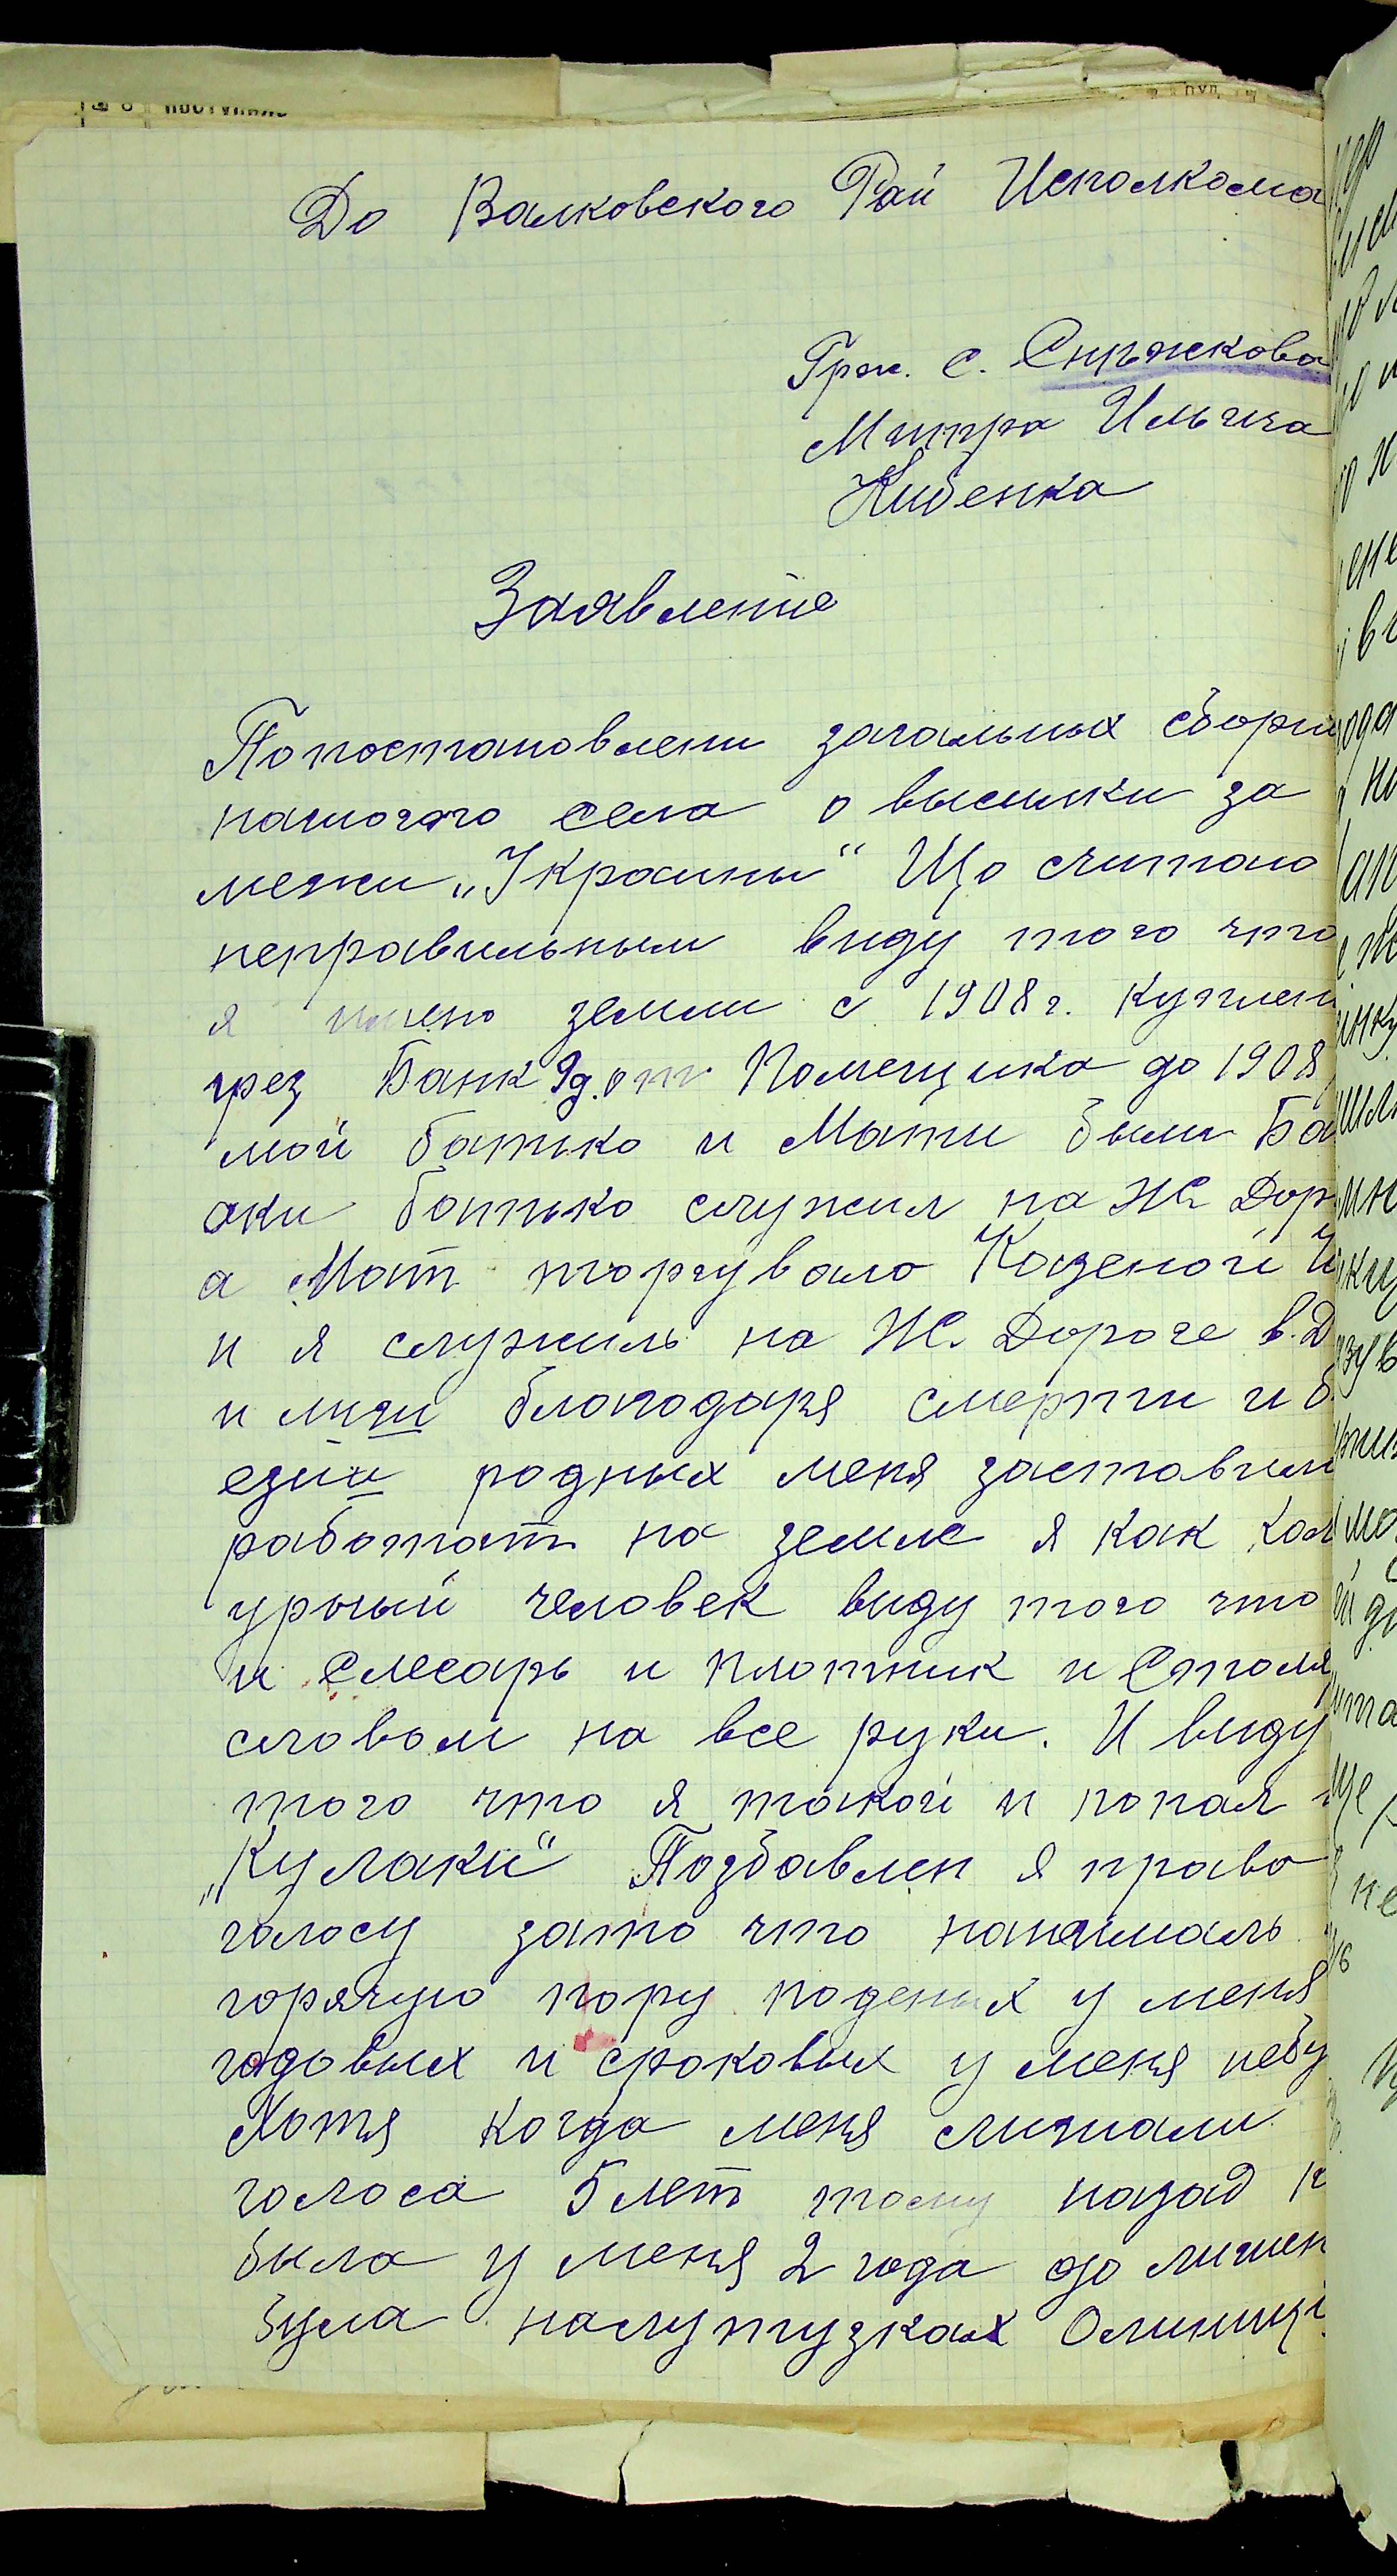 До Валковского Рай Исполкома
Грж. с. Снѣжкова
Митра Ильича
Кибенка
Заявление
Попостановлени загальных сборив
нашогого села о высилки за
межи „Украины“ Що считаю
неправильным виду того что
я имею земли с 1908 г. куплен
чрез Банк 9д. от Помещика до 1908
мой батько и Мати были Ба
аки батько служил на Ж. Дор
а Мат торгувала Казеной
и я служиль на Ж. Дороге в. Д
и лиш благодаря смерти и б
езии родных меня заставили
работат на земле я как кол
урный человек виду того что
и слесарь и плотник и Столя
словом на все руки. И виду
того что я такой и попал
„Кулаки“ Позбавлен я право
голосу зато что нанималь
горячую пору поденых у меня
годовых и сроковых у меня небу
Хотя когда меня лишали
голоса 5 лет тому назад
была у меня 2 года до лишен
була наступузках Олиниці